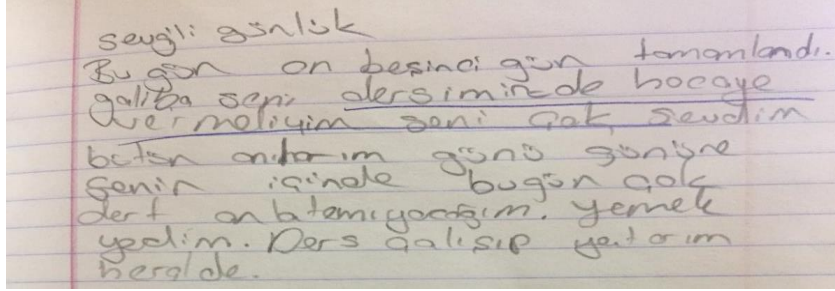 sevgili günlük
Bu gün on beşinci gün tamamlandı.
galiba seni dersiminde hocaya
vermeliyim seni çok sevdim
bütün anılarım günü gününe
senin içinde bugün çok
dert anlatamıyacağım. yemek
yedim. Ders çalışıp yatarım
heralde.